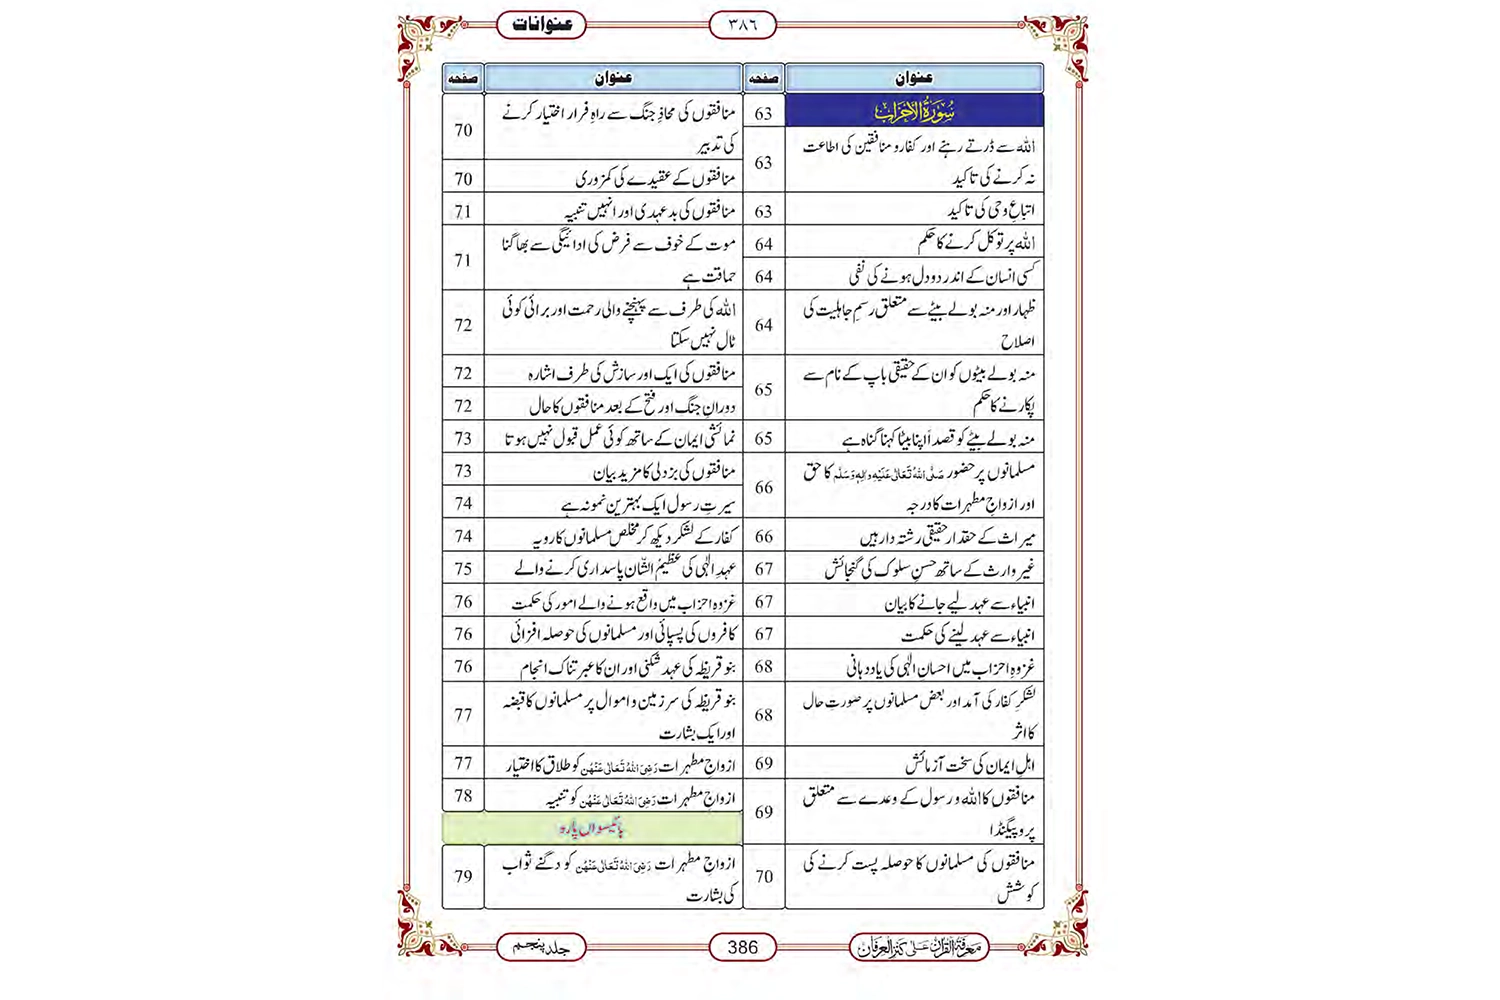 عنوانات
٣٨٦
عنوان صفحہ
سُوْرَۃُ الْاَحْزَاب 63
اللہ سے ڈرتے رہنے اور کفار و منافقین کی اطاعت
نہ کرنے کی تاکید 63
اتباعِ وحی کی تاکید 63
اللہ پر توکل کرنے کا حکم 64
کسی انسان کے اندر دو دل ہونے کی نفی 64
ظہار اور منہ بولے بیٹے سے متعلق رسمِ جاہلیت کی
اصلاح 64
منہ بولے بیٹوں کو ان کے حقیقی باپ کے نام سے
پکارنے کا حکم 65
منہ بولے بیٹے کو قصداً اپنا بیٹا کہنا گناہ ہے 65
مسلمانوں پر حضور صَلَّی اللہُ تَعَالٰی عَلَیْہِ وَاٰلِہٖ وَسَلَّم کا حق
اور ازواجِ مطہرات کا درجہ 66
میراث کے حقدار حقیقی رشتہ دار ہیں 66
غیر وارث کے ساتھ حسنِ سلوک کی گنجائش 67
انبیاء سے عہد لیے جانے کا بیان 67
انبیاء سے عہد لینے کی حکمت 67
غزوہِ احزاب میں احسانِ الٰہی کی یاد دہانی 68
لشکرِ کفار کی آمد اور بعض مسلمانوں پر صورتِ حال
کا اثر 68
اہلِ ایمان کی سخت آزمائش 69
منافقوں کا اللہ و رسول کے وعدے سے متعلق
پروپیگنڈا 69
منافقوں کی مسلمانوں کا حوصلہ پست کرنے کی
کوشش 70
عنوان صفحہ
منافقوں کی محاذِ جنگ سے راہِ فرار اختیار کرنے
کی تدبیر 70
منافقوں کے عقیدے کی کمزوری 70
منافقوں کی بدعہدی اور انہیں تنبیہ 71
موت کے خوف سے فرض کی ادائیگی سے بھاگنا
حماقت ہے 71
اللہ کی طرف سے پہنچنے والی رحمت اور برائی کوئی
ٹال نہیں سکتا 72
منافقوں کی ایک اور سازش کی طرف اشارہ 72
دورانِ جنگ اور فتح کے بعد منافقوں کا حال 72
نمائشی ایمان کے ساتھ کوئی عمل قبول نہیں ہوتا 73
منافقوں کی بزدلی کا مزید بیان 73
سیرتِ رسول ایک بہترین نمونہ ہے 74
کفار کے لشکر دیکھ کر مخلص مسلمانوں کا رویہ 74
عہدِ الٰہی کی عظیمُ الشّان پاسداری کرنے والے 75
غزوہِ احزاب میں واقع ہونے والے امور کی حکمت 76
کافروں کی پسپائی اور مسلمانوں کی حوصلہ افزائی 76
بنو قریظہ کی عہد شکنی اور ان کا عبرتناک انجام 76
بنو قریظہ کی سرزمین و اموال پر مسلمانوں کا قبضہ
اور ایک بشارت 77
ازواجِ مطہرات رَضِیَ اللہُ تَعَالٰی عَنْہُن کو طلاق کا اختیار 77
ازواجِ مطہرات رَضِیَ اللہُ تَعَالٰی عَنْہُن کو تنبیہ 78
بائیسواں پارہ
ازواجِ مطہرات رَضِیَ اللہُ تَعَالٰی عَنْہُن کو دگنے ثواب
کی بشارت 79
معرفۃ القرآن علیٰ کنز العرفان
386
جلد پنجم